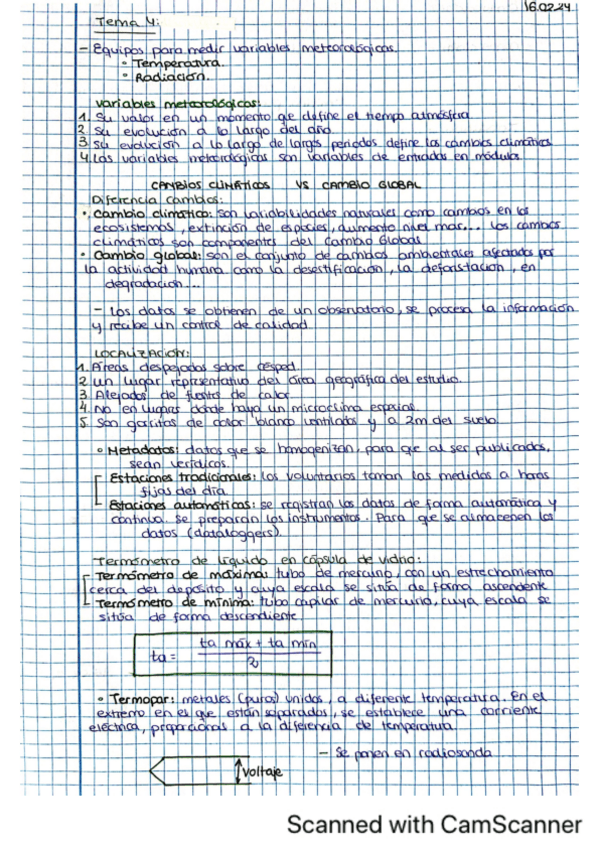 16.02.24
Tema 4:
- Equipos para medir variables meteorológicas.
• Temperatura.
• Radiación.
Variables meteorológicas:
1. Su valor en un momento que define el tiempo atmósfera
2. Su evolución a lo largo del año
3. Su evolución a lo largo de largos periodos define los cambios climáticos
4. Las variables meteorológicas son variables de entradas en módulos
CAMBIOS CLIMÁTICOS VS CAMBIO GLOBAL
Diferencia cambios:
• Cambio climático: son variabilidades naturales como cambios en los
ecosistemas, extinción de especies, aumento nivel mar... Los cambios
climáticos son componentes del cambio Global
• Cambio global: son el conjunto de cambios ambientales afectados por
la actividad humana como la desertificación, la deforstación, en
degradación...
- Los datos se obtienen de un observatorio, se procesa la información
y recibe un control de calidad
LOCALIZACIÓN:
1. Áreas despejadas sobre césped.
2. Un lugar representativo del área geográfica del estudio.
3. Alejados de fuentes de calor
4. No en lugares donde haya un microclima especial
5. Son garitas de color blanco ventilados y a 2m del suelo
• Metadatos: datos que se homogenizan, para que al ser publicados,
sean verídicos.
Estaciones tradicionales: los voluntarios toman las medidas a horas
fijas del día
Estaciones automáticas: se registran los datos de forma automática y
continua. Se preparan los instrumentos. Para que se almacenen los
datos (dataloggers).
Termómetro de líquido en cápsula de vidrio:
Termómetro de máxima: tubo de mercurio, con un estrechamiento
cerca del depósito y cuya escala se sitúa de forma ascendente
Termómetro de mínima: tubo capilar de mercurio, cuya escala se
sitúa de forma descendiente.
ta = ta máx + ta mín
2
• Termopar: metales (puros) unidos, a diferente temperatura. En el
extremo en el que están separados, se establece una corriente
eléctrica, proporcional a la diferencia de temperatura.
- Se ponen en radiosonda
Voltaje
Scanned with CamScanner